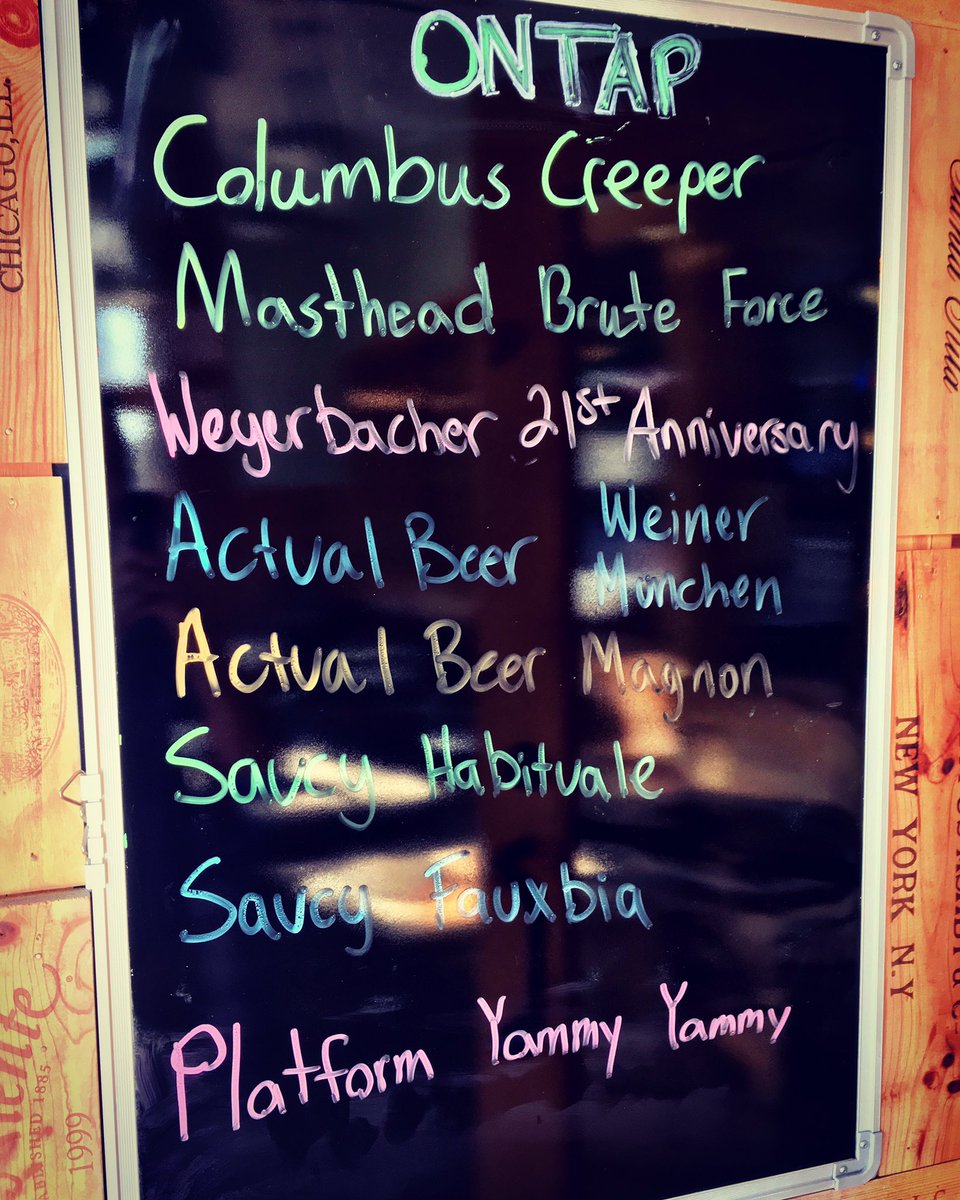 ONTAP
Columbus Creeper
Masthead Brute Force
Weyerbacher 21st Anniversary
Actual Beer Weiner
Munchen
Actual Beer Magnon
Saucy Habituale
Saucy Fauxbia
Platform Yammy Yammy
CHICAGO, ILL.
1885
1999
NEW YORK N.Y